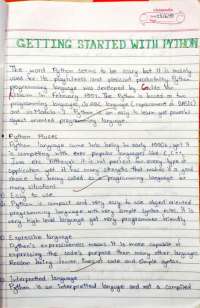 GETTING STARTED WITH PYTHON
The word Python seems to be scary but it is mainly
used for its
programming language was developed by Guido Van
in February 1991. The Python is based on two
programming languages, is ABC language (replacement of BASIC)
and is Modula-3. Python is an easy to learn yet powerful
object oriented programming language.
Python Pluses
Python language came into being in early 1990s, yet it
is competing with ever popular languages like C, C++,
Java etc. Although it is not perfect for every type of
application yet it has many strengths that makes it a good
choice for being called programming language in
many situations.
Easy to use
Python is compact and very easy to use object oriented
programming language with very simple syntax rules. It is
very high level language yet very programmer friendly
Expressive language
Python's expressiveness means it is more capable of
expressing the code's purpose than many other languages
Reason being shorter lines of code and simple syntax.
Interpreted language
Python is an interpretted language and not a compiled